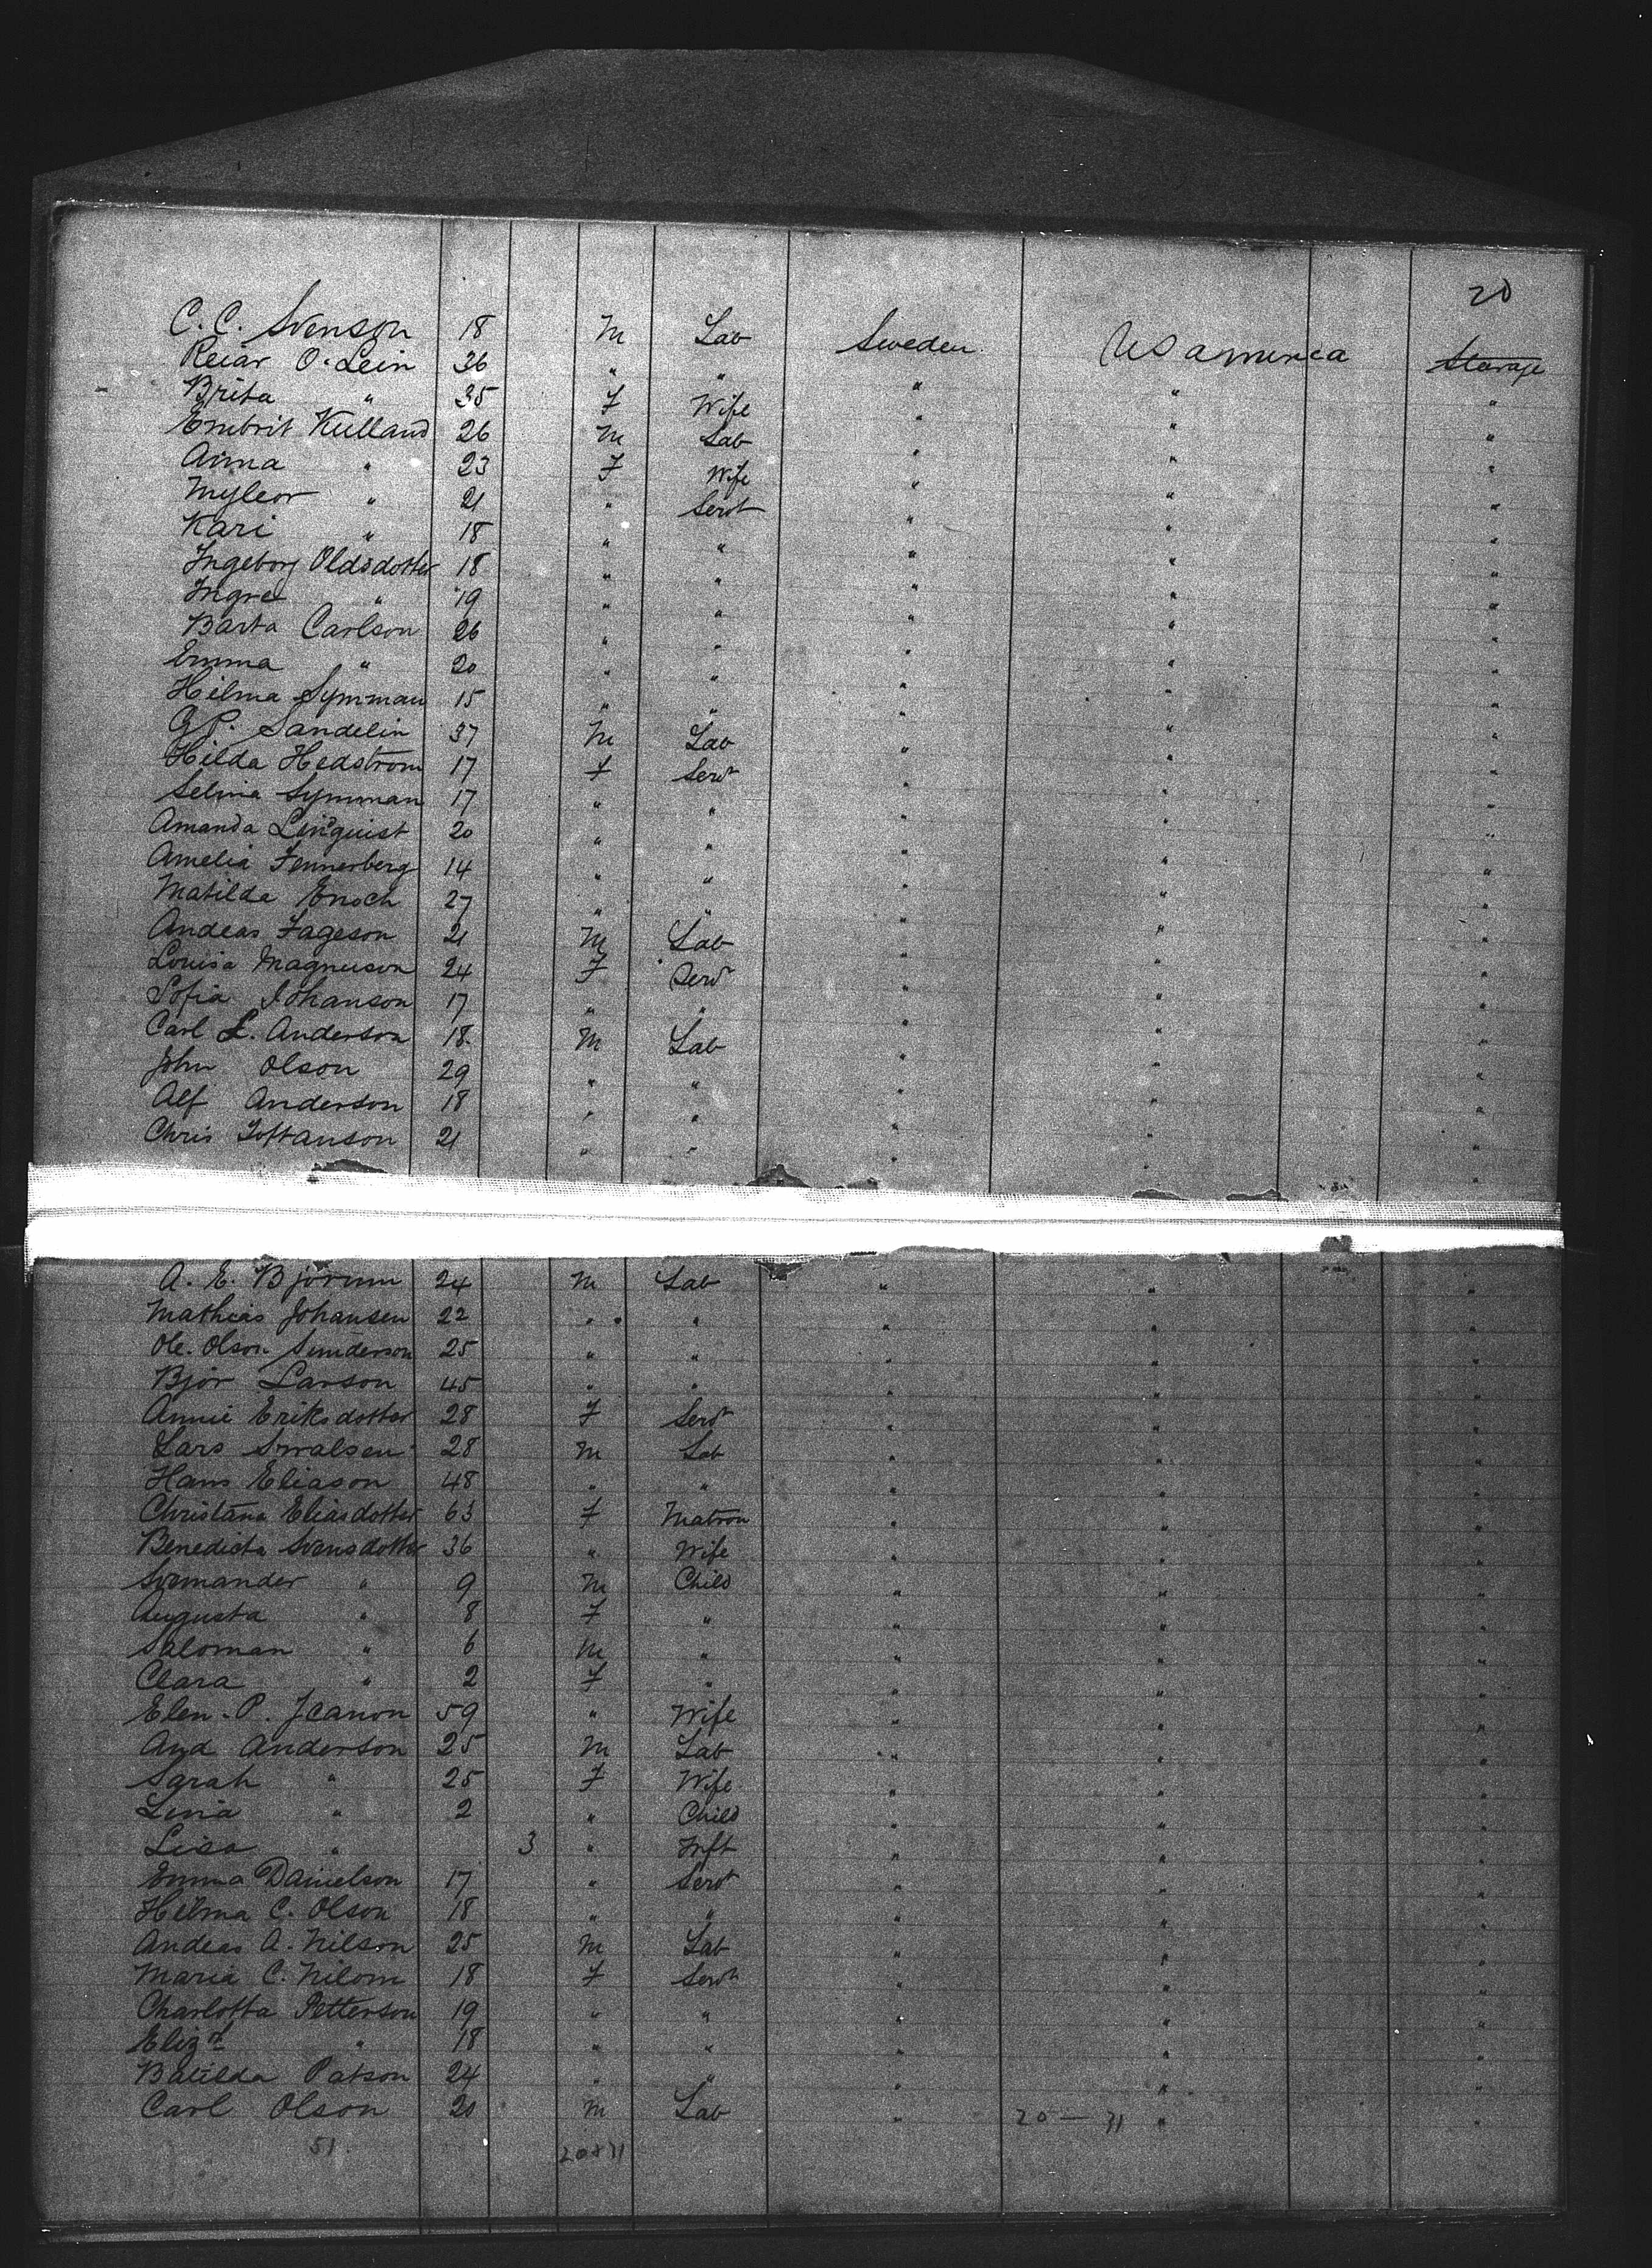 20
C. C. Svenson 18 M Lab Sweden US America Steerage
Reiar O. Lein 36 " " " " "
Brita " 35 F Wife " " "
Embrit Kulland 26 M Lab " " "
Anna " 23 F Wife " " "
Myleor " 21 " Servt " " "
Kari " 18 " " " " "
Ingeborg Oldsdotter 18 " " " " "
Ingre " 19 " " " " "
Barta Carlson 26 " " " " "
Emma " 20 " " " " "
Hilma Symman 15 " " " " "
G P. Sandelin 37 M Lab " " "
Hilda Hedstrom 17 F Servt " " "
Selma Symman 17 " " " " "
Amanda Linquist 20 " " " " "
Amelia Fennerberg 14 " " " " "
Matilda Enoch 27 " " " " "
Andeas Fageson 21 M Lab " " "
Louisa Magnuson 24 F Servt " " "
Sofia Johanson 17 " " " " "
Carl L. Anderson 18 M Lab " " "
John Olson 29 " " " " "
Alf Anderson 18 " " " " "
Chris Toftanson 21 " " " " "
A. E. Bjorum 24 M Lab " " "
Mathias Johansen 22 " " " " "
Ole. Olson Sunderson 25 " " " " "
Bjor Larson 45 " " " " "
Annie Eriksdotter 28 F Servt " " "
Lars Swalsen 28 M Lab " " "
Hans Eliason 48 " " " " "
Christana Eliasdotter 63 F Matron " " "
Benedicta Svensdotter 36 " Wife " " "
Svemander " 9 M Child " " "
Augusta " 8 F " " " "
Saloman " 6 M " " " "
Clara " 2 F " " " "
Elen. P. 59 " Wife " " "
And Anderson 25 M Lab " " "
Sarah " 25 F Wife " " "
Lina " 2 " Child " " "
Lisa " 3 " Inft " " "
Emma Danielson 17 " Servt " " "
Hilma C. Olson 18 " " " " "
Andeas A. Nilson 25 M Lab " " "
Maria C. Nilom 18 F Servt " " "
Charlotta Petterson 19 " " " " "
Elizth " 18 " " " " "
Batilda Patson 24 " " " " "
Carl Olson 20 M Lab " 20 — 31 " "
51 20 + 31